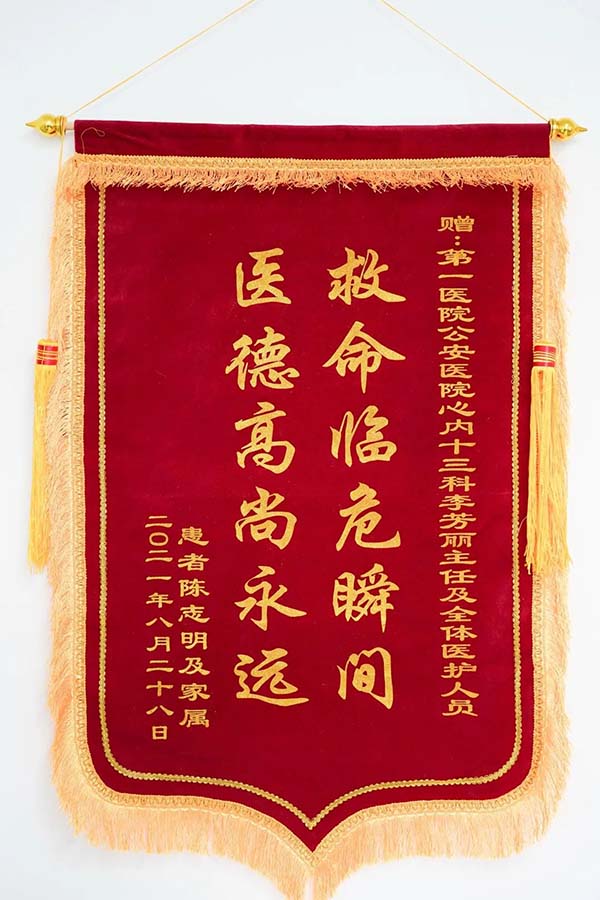 赠：第一医院公安医院心内十三科李芳丽主任及全体医护人员
救命临危瞬间
医德高尚永远
患者陈志明及家属
二〇二一年八月二十八日